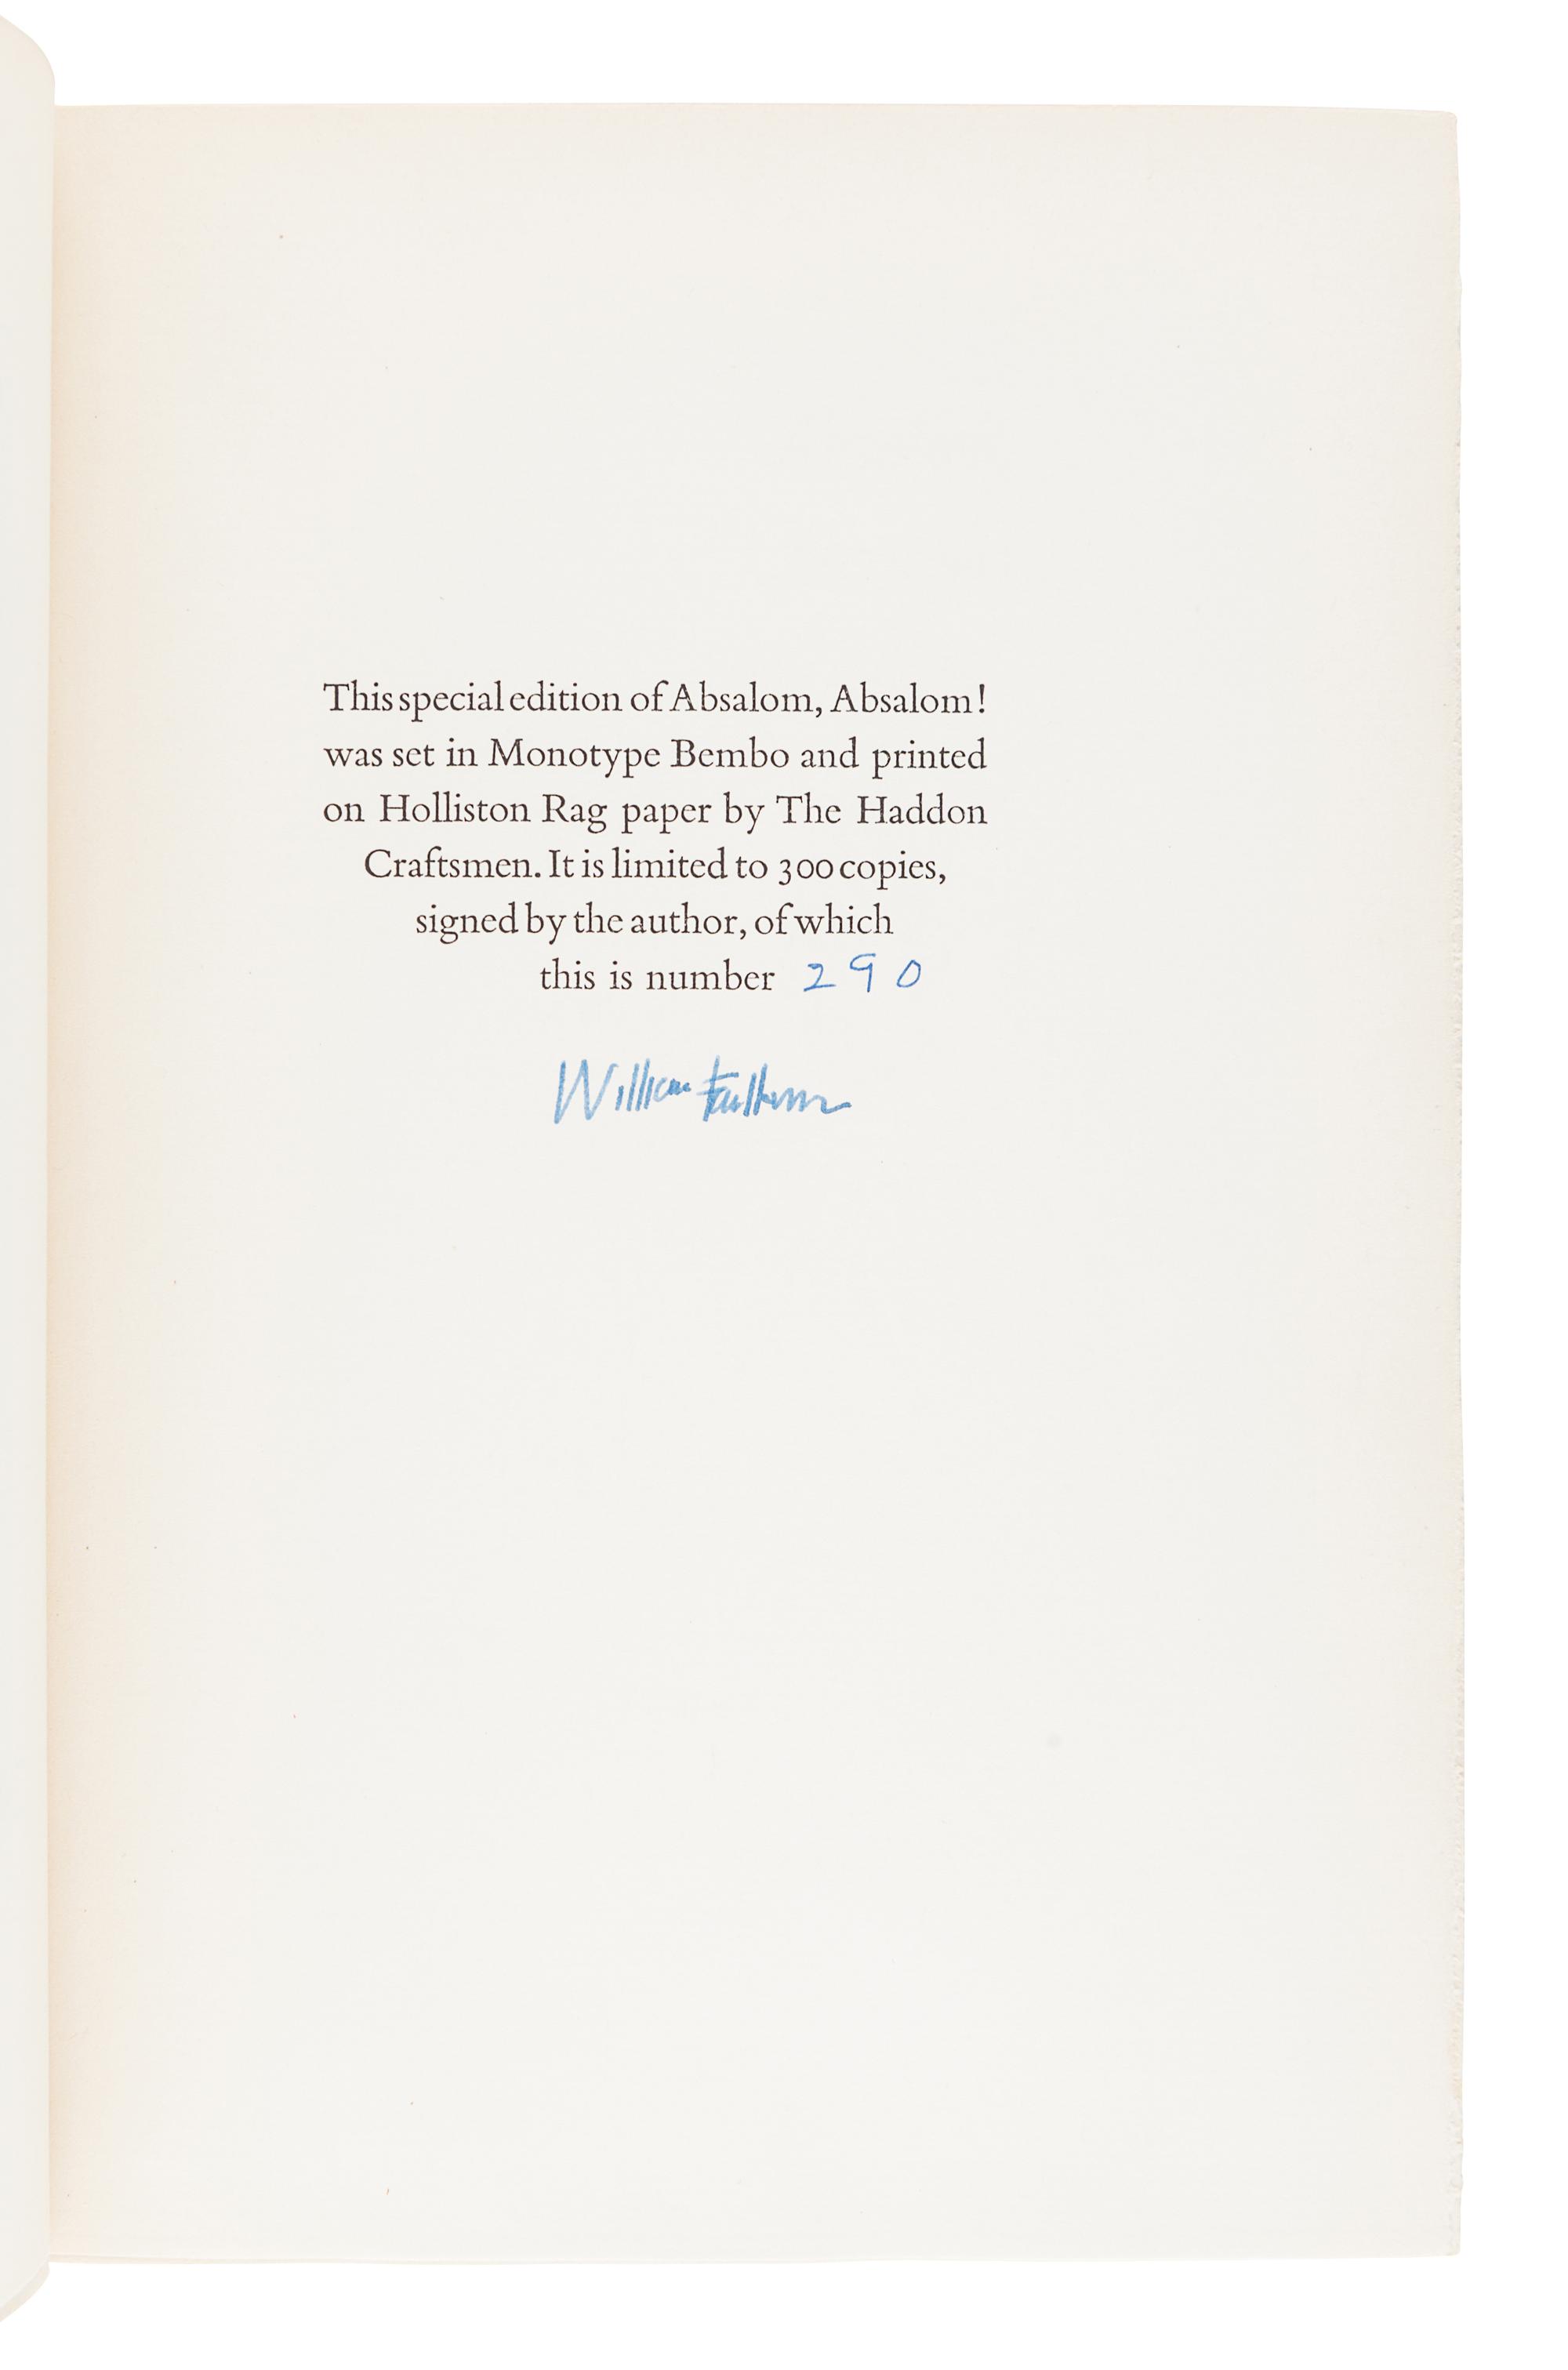 This special edition of Absalom, Absalom!
was set in Monotype Bembo and printed
on Holliston Rag paper by The Haddon
Craftsmen. It is limited to 300 copies,
signed by the author, of which
this is number 290
William Faulkner